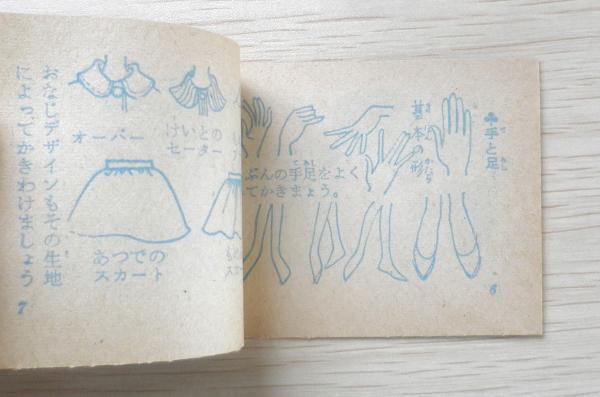 ♣手と足
基本の形
ぶんの手足をよく
てかきましょう。
6
オーバー
けいとの
セーター
あつでの
スカート
おなじデザインもその生地
によってかきわけましょう
7